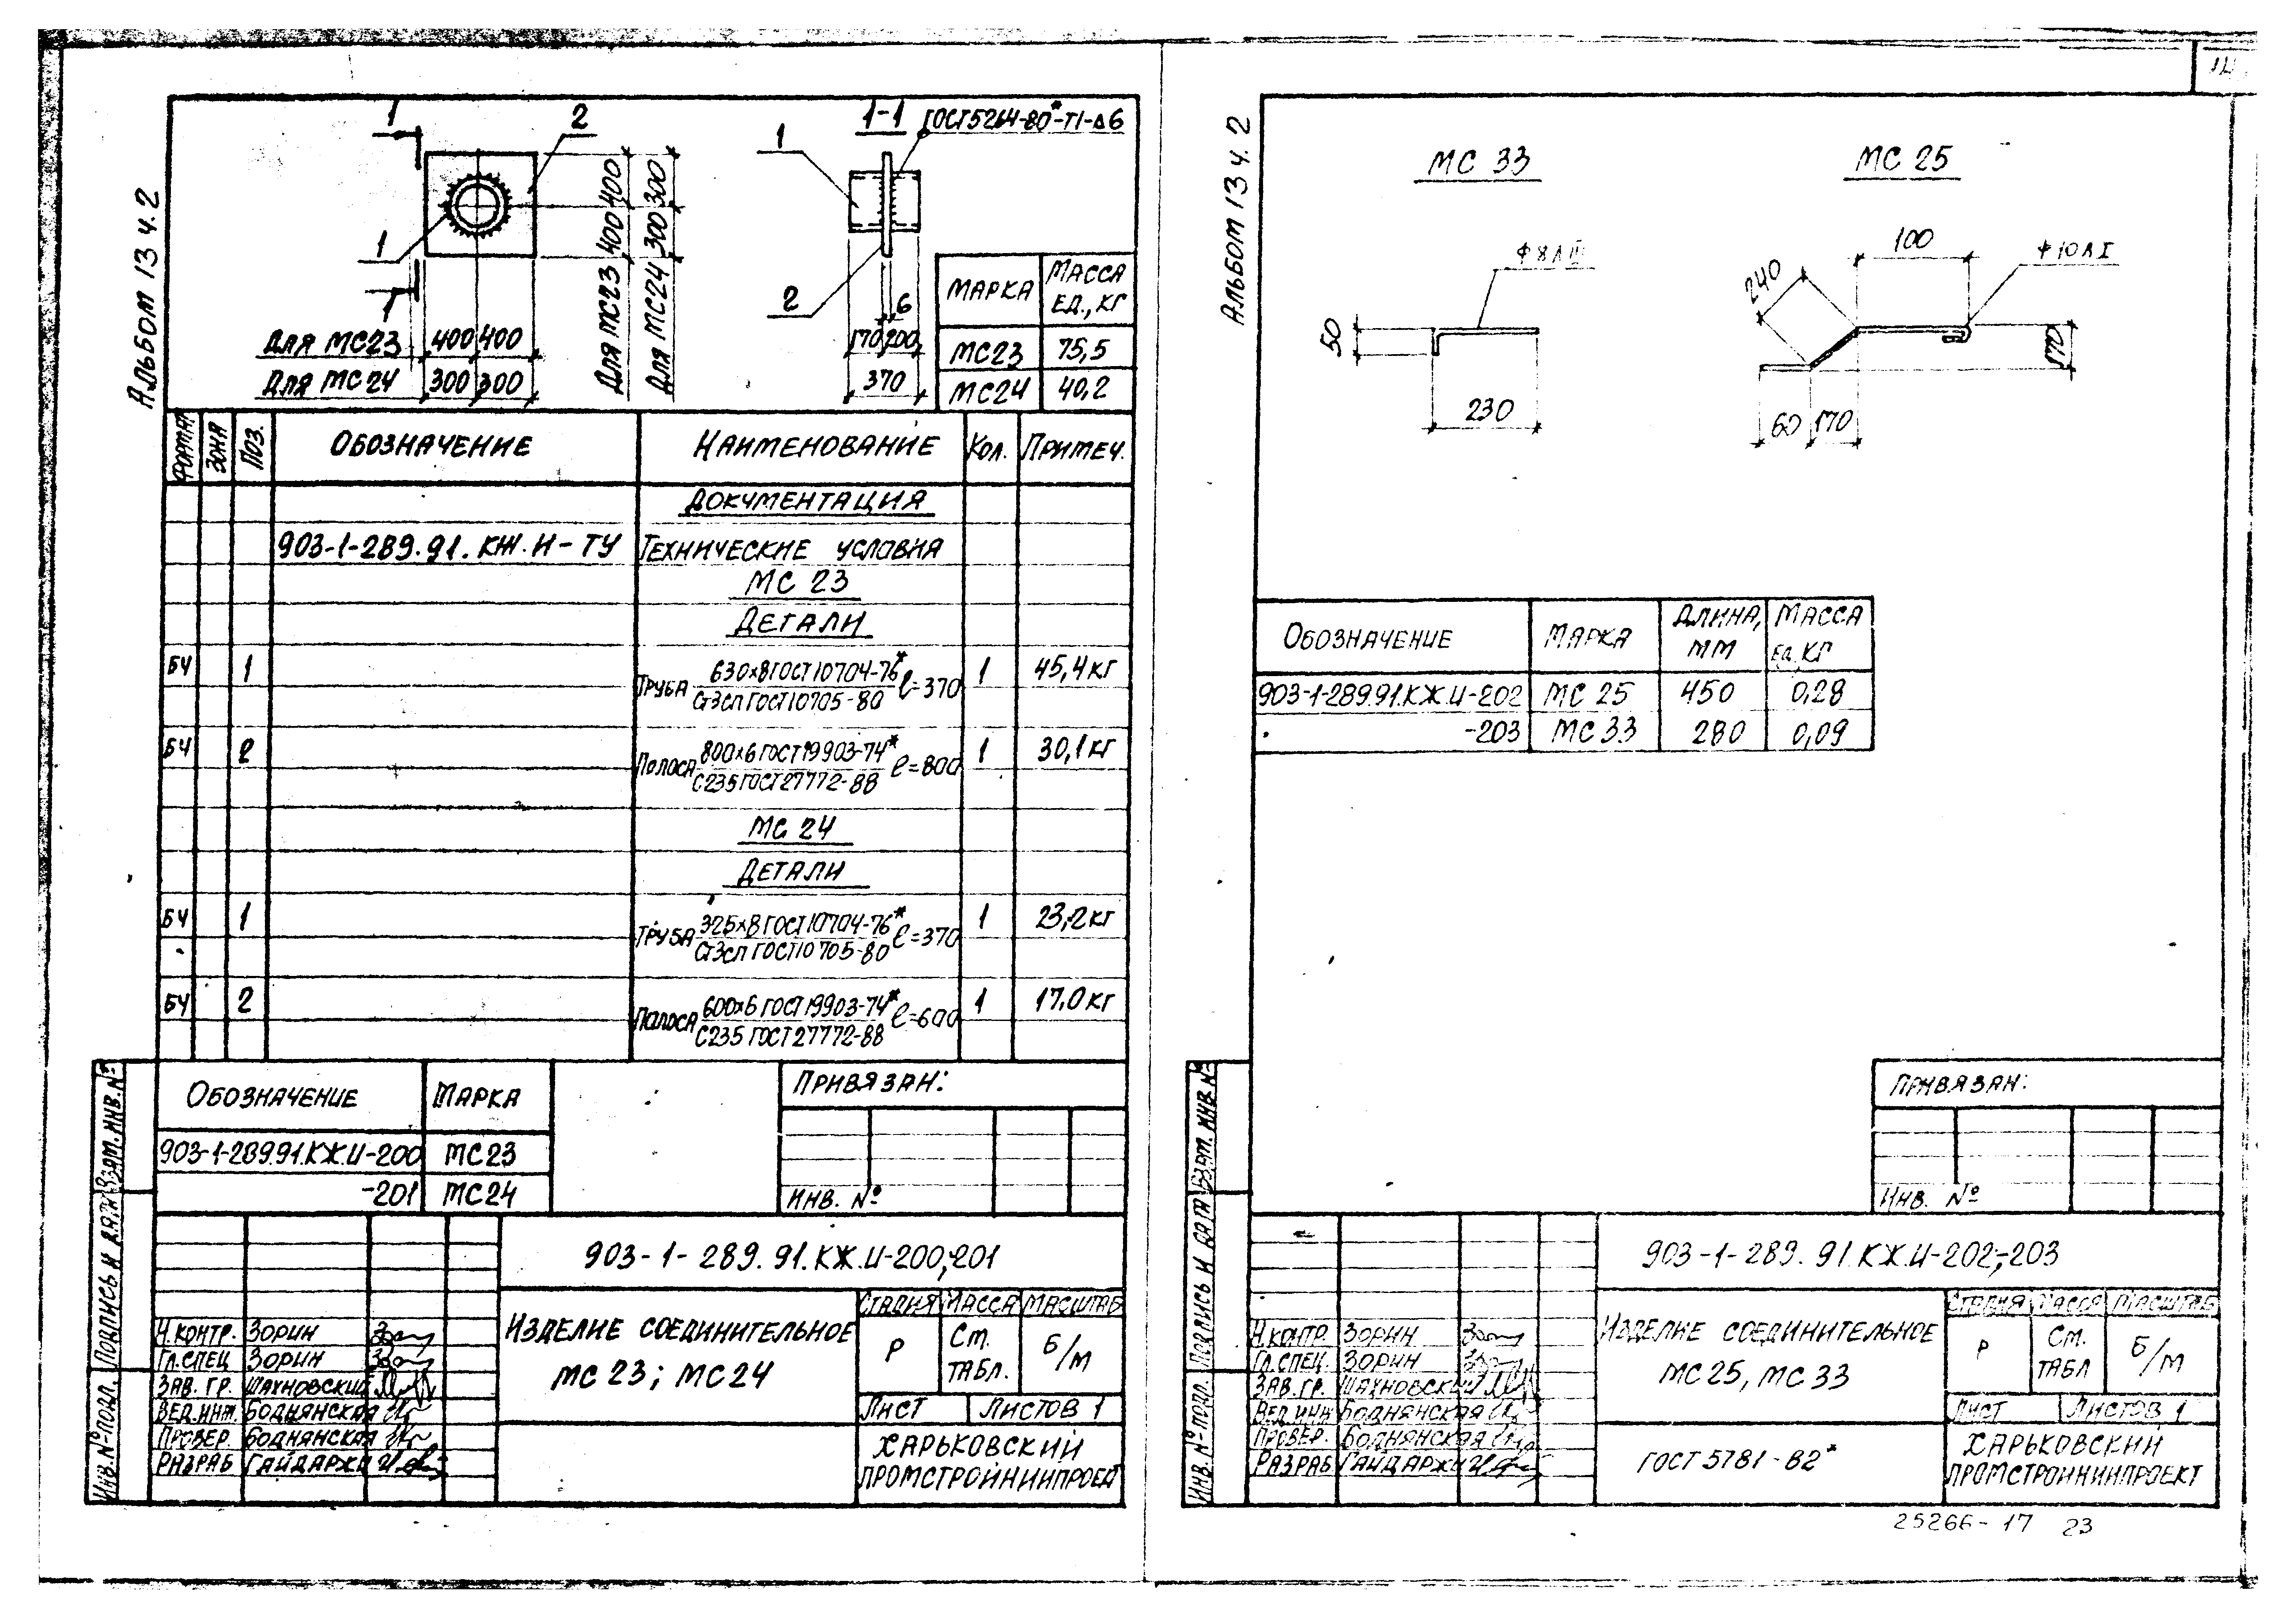 14
Альбом 13 ч. 2
1
2
1
1
Для МС23 400 400
Для МС24 300 300
Для МС23 400 400
Для МС24 300 300
1-1
ГОСТ 5264-80*-Т1-Δ6
1
2
6
170 200
370
МАРКА МАССА ЕД., КГ
МС23 75,5
МС24 40,2
ФОРМАТ ЗОНА ПОЗ. ОБОЗНАЧЕНИЕ НАИМЕНОВАНИЕ КОЛ. ПРИМЕЧ.
ДОКУМЕНТАЦИЯ
903-1-289.91.КЖ.И-ТУ ТЕХНИЧЕСКИЕ УСЛОВИЯ
МС 23
ДЕТАЛИ
БЧ 1 ТРУБА 630х8 ГОСТ 10704-76* / Ст3сп ГОСТ 10705-80 ℓ=370 1 45,4 кг
БЧ 2 ПОЛОСА 800х6 ГОСТ 19903-74* / С235 ГОСТ 27772-88 ℓ=800 1 30,1 кг
МС 24
ДЕТАЛИ
БЧ 1 ТРУБА 325х8 ГОСТ 10704-76* / Ст3сп ГОСТ 10705-80 ℓ=370 1 23,2 кг
БЧ 2 ПОЛОСА 600х6 ГОСТ 19903-74* / С235 ГОСТ 27772-88 ℓ=600 1 17,0 кг
ОБОЗНАЧЕНИЕ МАРКА
903-1-289.91.КЖ.И-200 МС23
-201 МС24
ПРИВЯЗАН:
ИНВ. №
ВЗЯТ. ИНВ. №
ПОДПИСЬ И ДАТА
ИНВ. № ПОДЛ.
903-1-289.91.КЖ.И-200;-201
Н.КОНТР. ЗОРИН
ГЛ.СПЕЦ ЗОРИН
ЗАВ. ГР. ШАХНОВСКИЙ
ВЕД.ИНЖ. БОДНЯНСКАЯ
ПРОВЕР. БОДНЯНСКАЯ
РАЗРАБ ГАЙДАРЖИ
ИЗДЕЛИЕ СОЕДИНИТЕЛЬНОЕ
МС 23; МС 24
СТАДИЯ МАССА МАСШТАБ
Р СМ. ТАБЛ. Б/М
ЛИСТ ЛИСТОВ 1
ХАРЬКОВСКИЙ
ПРОМСТРОЙНИИПРОЕКТ
Альбом 13 ч. 2
МС 33
Ф 8 А III
50
230
МС 25
100
Ф 10 А I
240
170
60 170
ОБОЗНАЧЕНИЕ МАРКА ДЛИНА, ММ МАССА ЕД., КГ
903-1-289.91.КЖ.И-202 МС 25 450 0,28
-203 МС 33 280 0,09
ПРИВЯЗАН:
ИНВ. №
ВЗЯТ. ИНВ. №
ПОДПИСЬ И ДАТА
ИНВ. № ПОДЛ.
903-1-289.91.КЖ.И-202;-203
Н.КОНТР. ЗОРИН
ГЛ.СПЕЦ. ЗОРИН
ЗАВ. ГР. ШАХНОВСКИЙ
ВЕД.ИНЖ БОДНЯНСКАЯ
ПРОВЕР. БОДНЯНСКАЯ
РАЗРАБ ГАЙДАРЖИ
ИЗДЕЛИЕ СОЕДИНИТЕЛЬНОЕ
МС 25, МС 33
СТАДИЯ МАССА МАСШТАБ
Р СМ. ТАБЛ Б/М
ЛИСТ ЛИСТОВ 1
ГОСТ 5781-82*
ХАРЬКОВСКИЙ
ПРОМСТРОЙНИИПРОЕКТ
25266-17 23